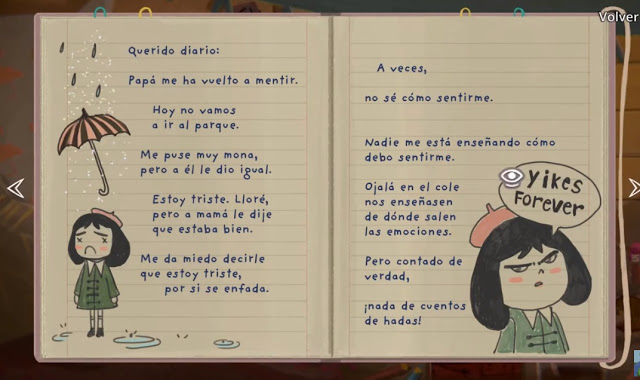 Volver
Querido diario:
Papá me ha vuelto a mentir.
Hoy no vamos
a ir al parque.
Me puse muy mona,
pero a él le dio igual.
Estoy triste. Lloré,
pero a mamá le dije
que estaba bien.
Me da miedo decirle
que estoy triste,
por si se enfada.
A veces,
no sé cómo sentirme.
Nadie me está enseñando cómo
debo sentirme.
Ojalá en el cole
nos enseñasen
de dónde salen
las emociones.
Pero contado de
verdad,
¡nada de cuentos
de hadas!
Yikes
Forever